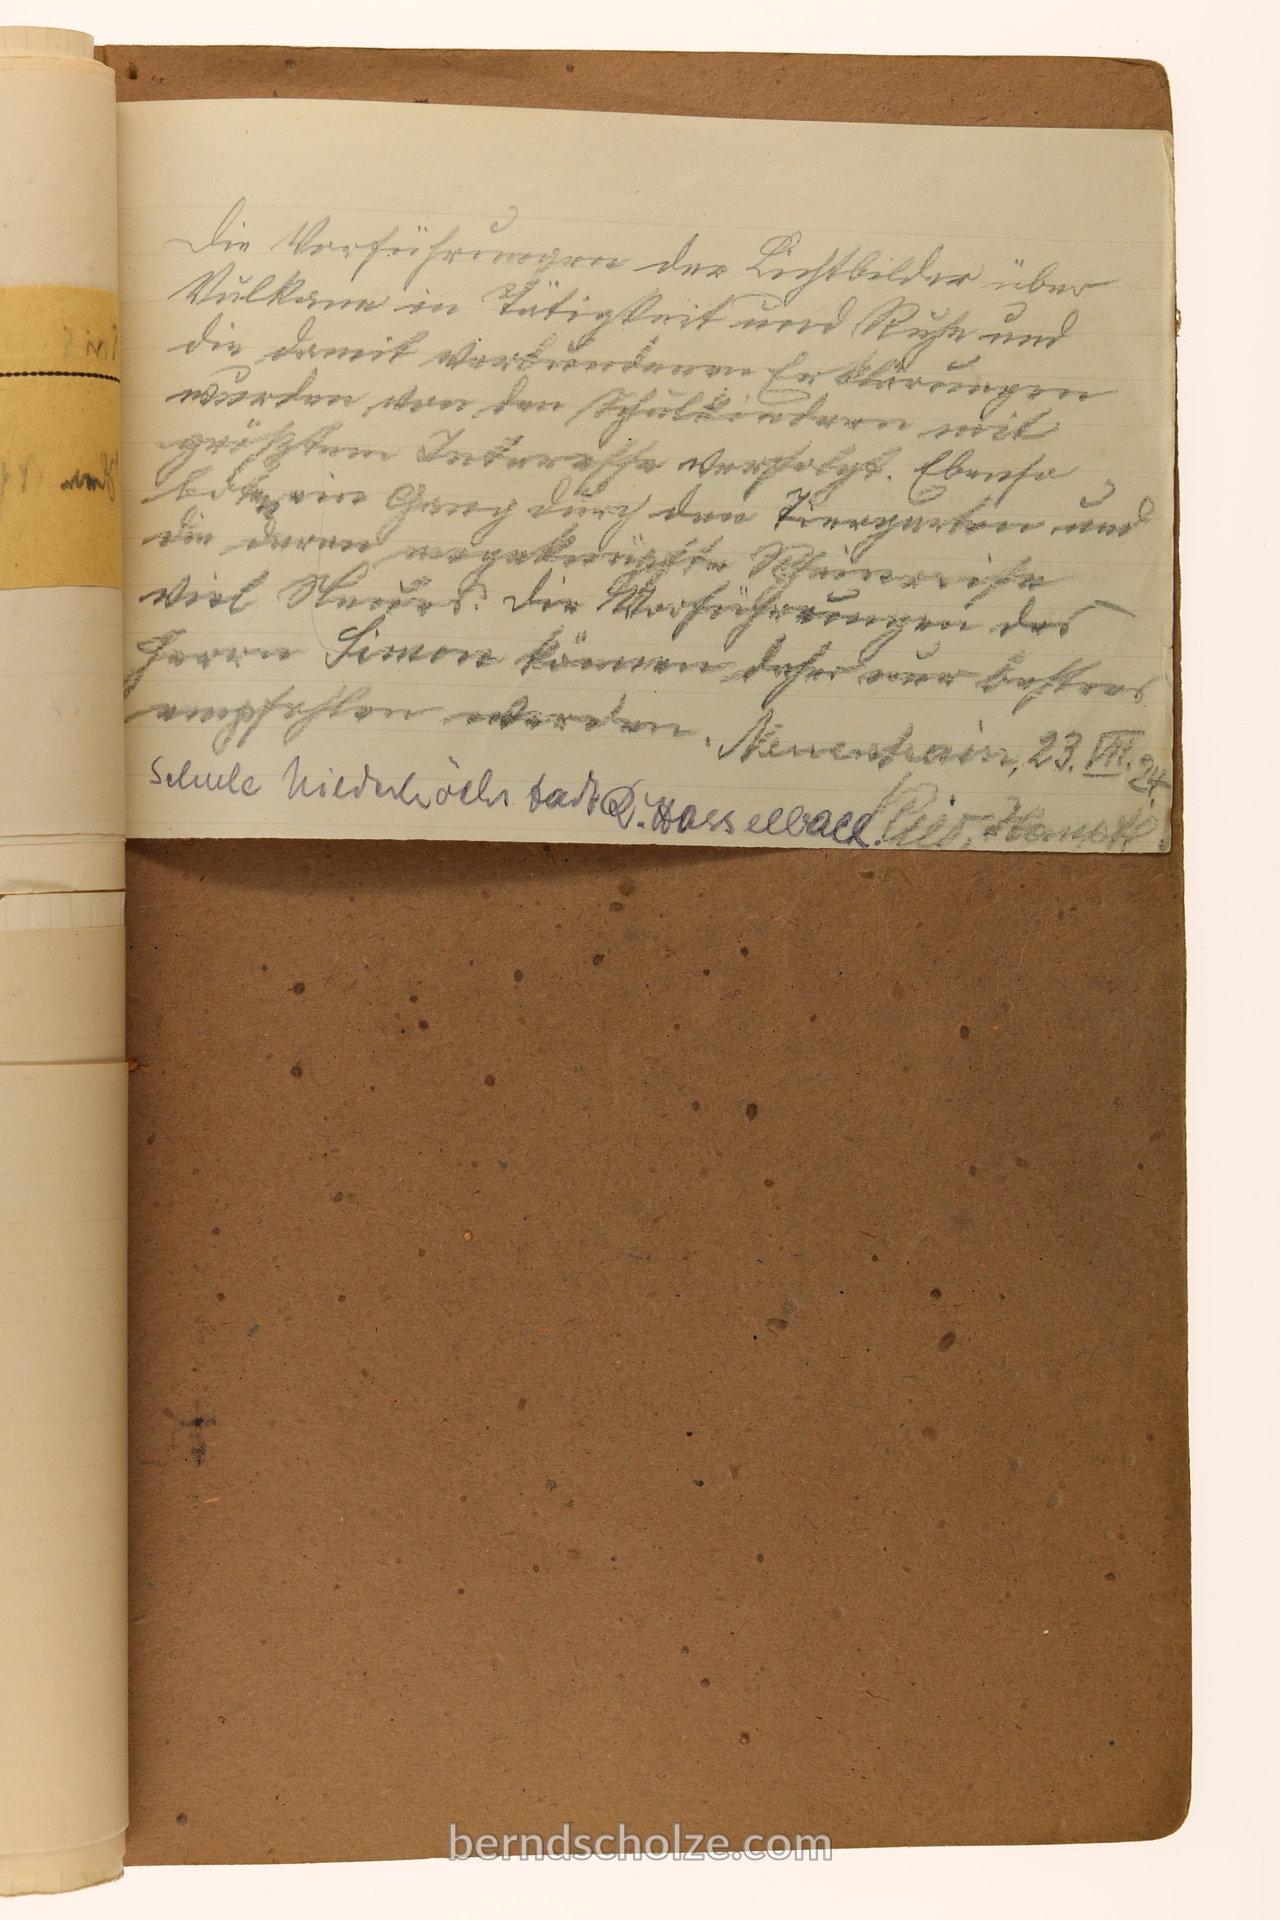 Die Vorführungen der Lichtbilder über
Vulkane in Tätigkeit und Ruhe und
die damit verbundenen Erklärungen
wurden von den Schulkindern mit
größtem Interesse verfolgt. Ebenso
bot ein Gang durch den Tiergarten und
die daran angeknüpfte Rheinreise
viel Neues. Die Vorführungen des
Herrn Simon können daher nur bestens
empfohlen werden. Neuenhain, 23. VII. 24.
Schule Niederhöchstadt D. Hasselbach.
berndscholze.com